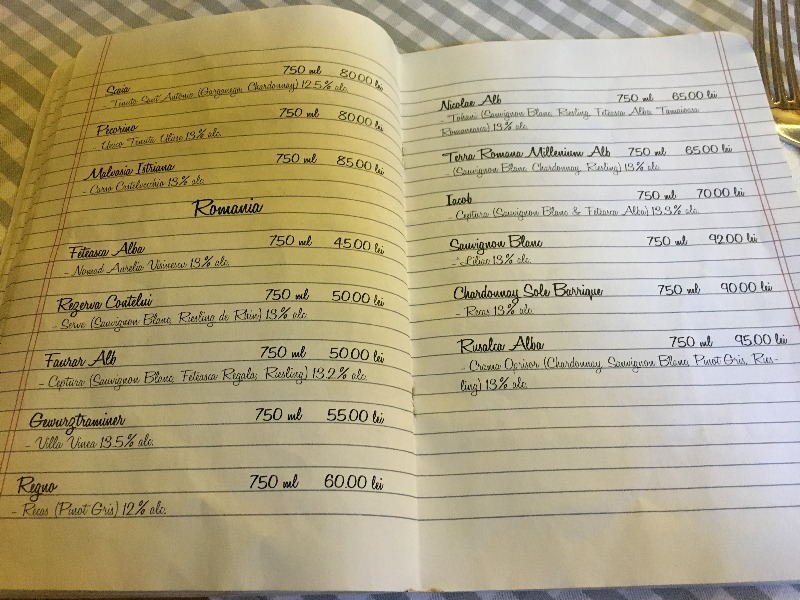 Scaia 750 ml 80.00 lei
Tenuta Sant' Antonio (Garganega, Chardonnay) 12.5% alc.
Pecorino 750 ml 80.00 lei
Unico Tenuta Ulisse 13% alc.
Malvasia Istriana 750 ml 85.00 lei
- Corso Castelvecchio 13% alc.
Romania
Feteasca Alba 750 ml 45.00 lei
- Nomad Aurelia Visinescu 13% alc.
Rezerva Contelui 750 ml 50.00 lei
- Serve (Sauvignon Blanc, Riesling de Rhin) 13% alc.
Faurar Alb 750 ml 50.00 lei
- Ceptura (Sauvignon Blanc, Feteasca Regala, Riesling) 13.2% alc.
Gewurztraminer 750 ml 55.00 lei
- Villa Vinea 13.5% alc.
Regno 750 ml 60.00 lei
- Recas (Pinot Gris) 12% alc.
Nicolae Alb 750 ml 65.00 lei
- Tohani (Sauvignon Blanc, Riesling, Feteasca Alba, Tamaioasa
Romaneasca) 13% alc.
Terra Romana Millenium Alb 750 ml 65.00 lei
(Sauvignon Blanc, Chardonnay, Riesling) 13% alc.
Iacob 750 ml 70.00 lei
- Ceptura (Sauvignon Blanc & Feteasca Alba) 13.3% alc.
Sauvignon Blanc 750 ml 92.00 lei
- Liliac 13% alc.
Chardonnay Sole Barrique 750 ml 90.00 lei
- Recas 13% alc.
Rusalca Alba 750 ml 95.00 lei
- Crama Oprisor (Chardonnay, Sauvignon Blanc, Pinot Gris, Ries-
ling) 13% alc.